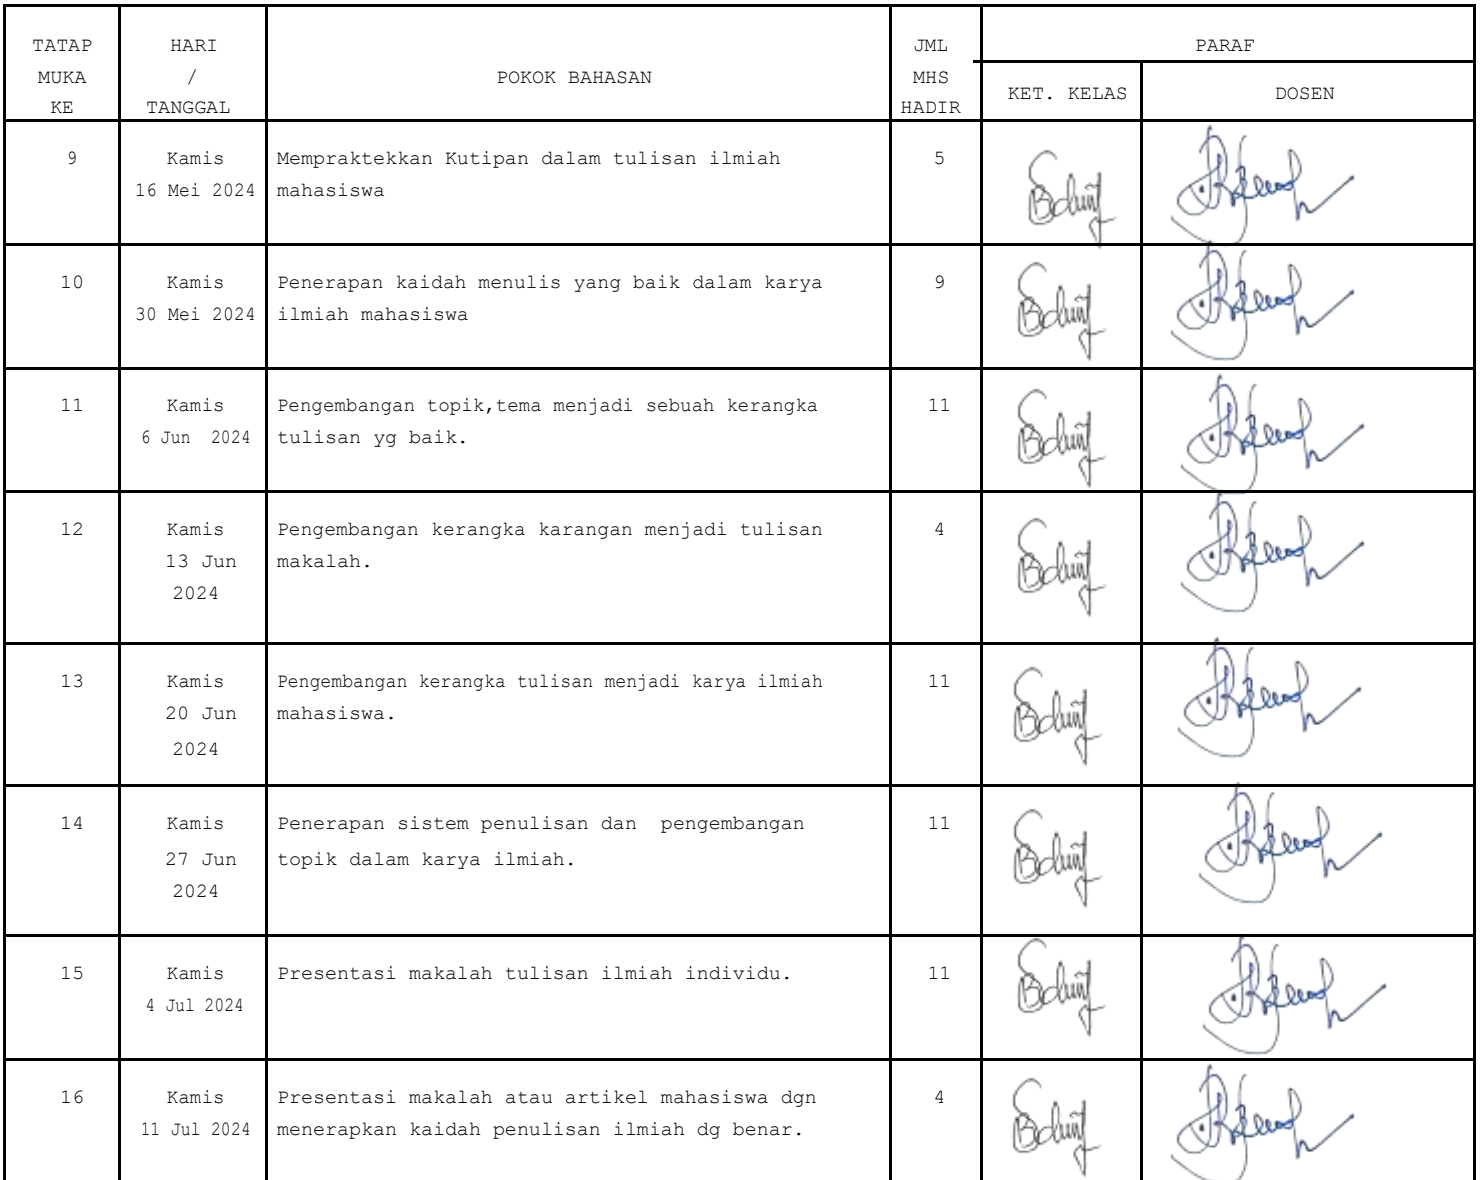 TATAP MUKA KE
HARI / TANGGAL
POKOK BAHASAN
JML MHS HADIR
PARAF
KET. KELAS
DOSEN
9
Kamis
16 Mei 2024
Mempraktekkan Kutipan dalam tulisan ilmiah
mahasiswa
5
10
Kamis
30 Mei 2024
Penerapan kaidah menulis yang baik dalam karya
ilmiah mahasiswa
9
11
Kamis
6 Jun 2024
Pengembangan topik,tema menjadi sebuah kerangka
tulisan yg baik.
11
12
Kamis
13 Jun
2024
Pengembangan kerangka karangan menjadi tulisan
makalah.
4
13
Kamis
20 Jun
2024
Pengembangan kerangka tulisan menjadi karya ilmiah
mahasiswa.
11
14
Kamis
27 Jun
2024
Penerapan sistem penulisan dan pengembangan
topik dalam karya ilmiah.
11
15
Kamis
4 Jul 2024
Presentasi makalah tulisan ilmiah individu.
11
16
Kamis
11 Jul 2024
Presentasi makalah atau artikel mahasiswa dgn
menerapkan kaidah penulisan ilmiah dg benar.
4